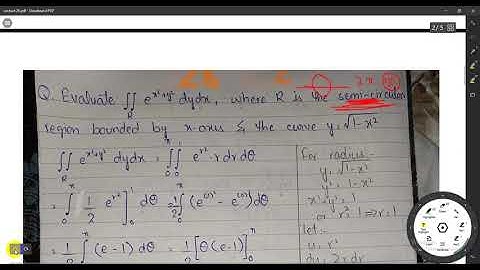 Q. Evaluate ∬_R e^{x²+y²} dydx, where R is the semi-circular
region bounded by x-axis & the curve y=√(1-x²)
∬_R e^{x²+y²} dydx = ∫_0^π ∫_0^1 e^{r²}·r dr dθ
= ∫_0^π [1/2 e^{r²}]_0^1 dθ = 1/2 ∫_0^π (e^{(1)²} - e^{(0)²}) dθ
= 1/2 ∫_0^π (e-1) dθ = 1/2 [θ(e-1)]_0^π
For radius:-
y=√(1-x²)
y²=1-x²
x²+y²=1
or r²=1 ⇒ r=1
let:-
u=r²
du=2rdr
2π
2/5